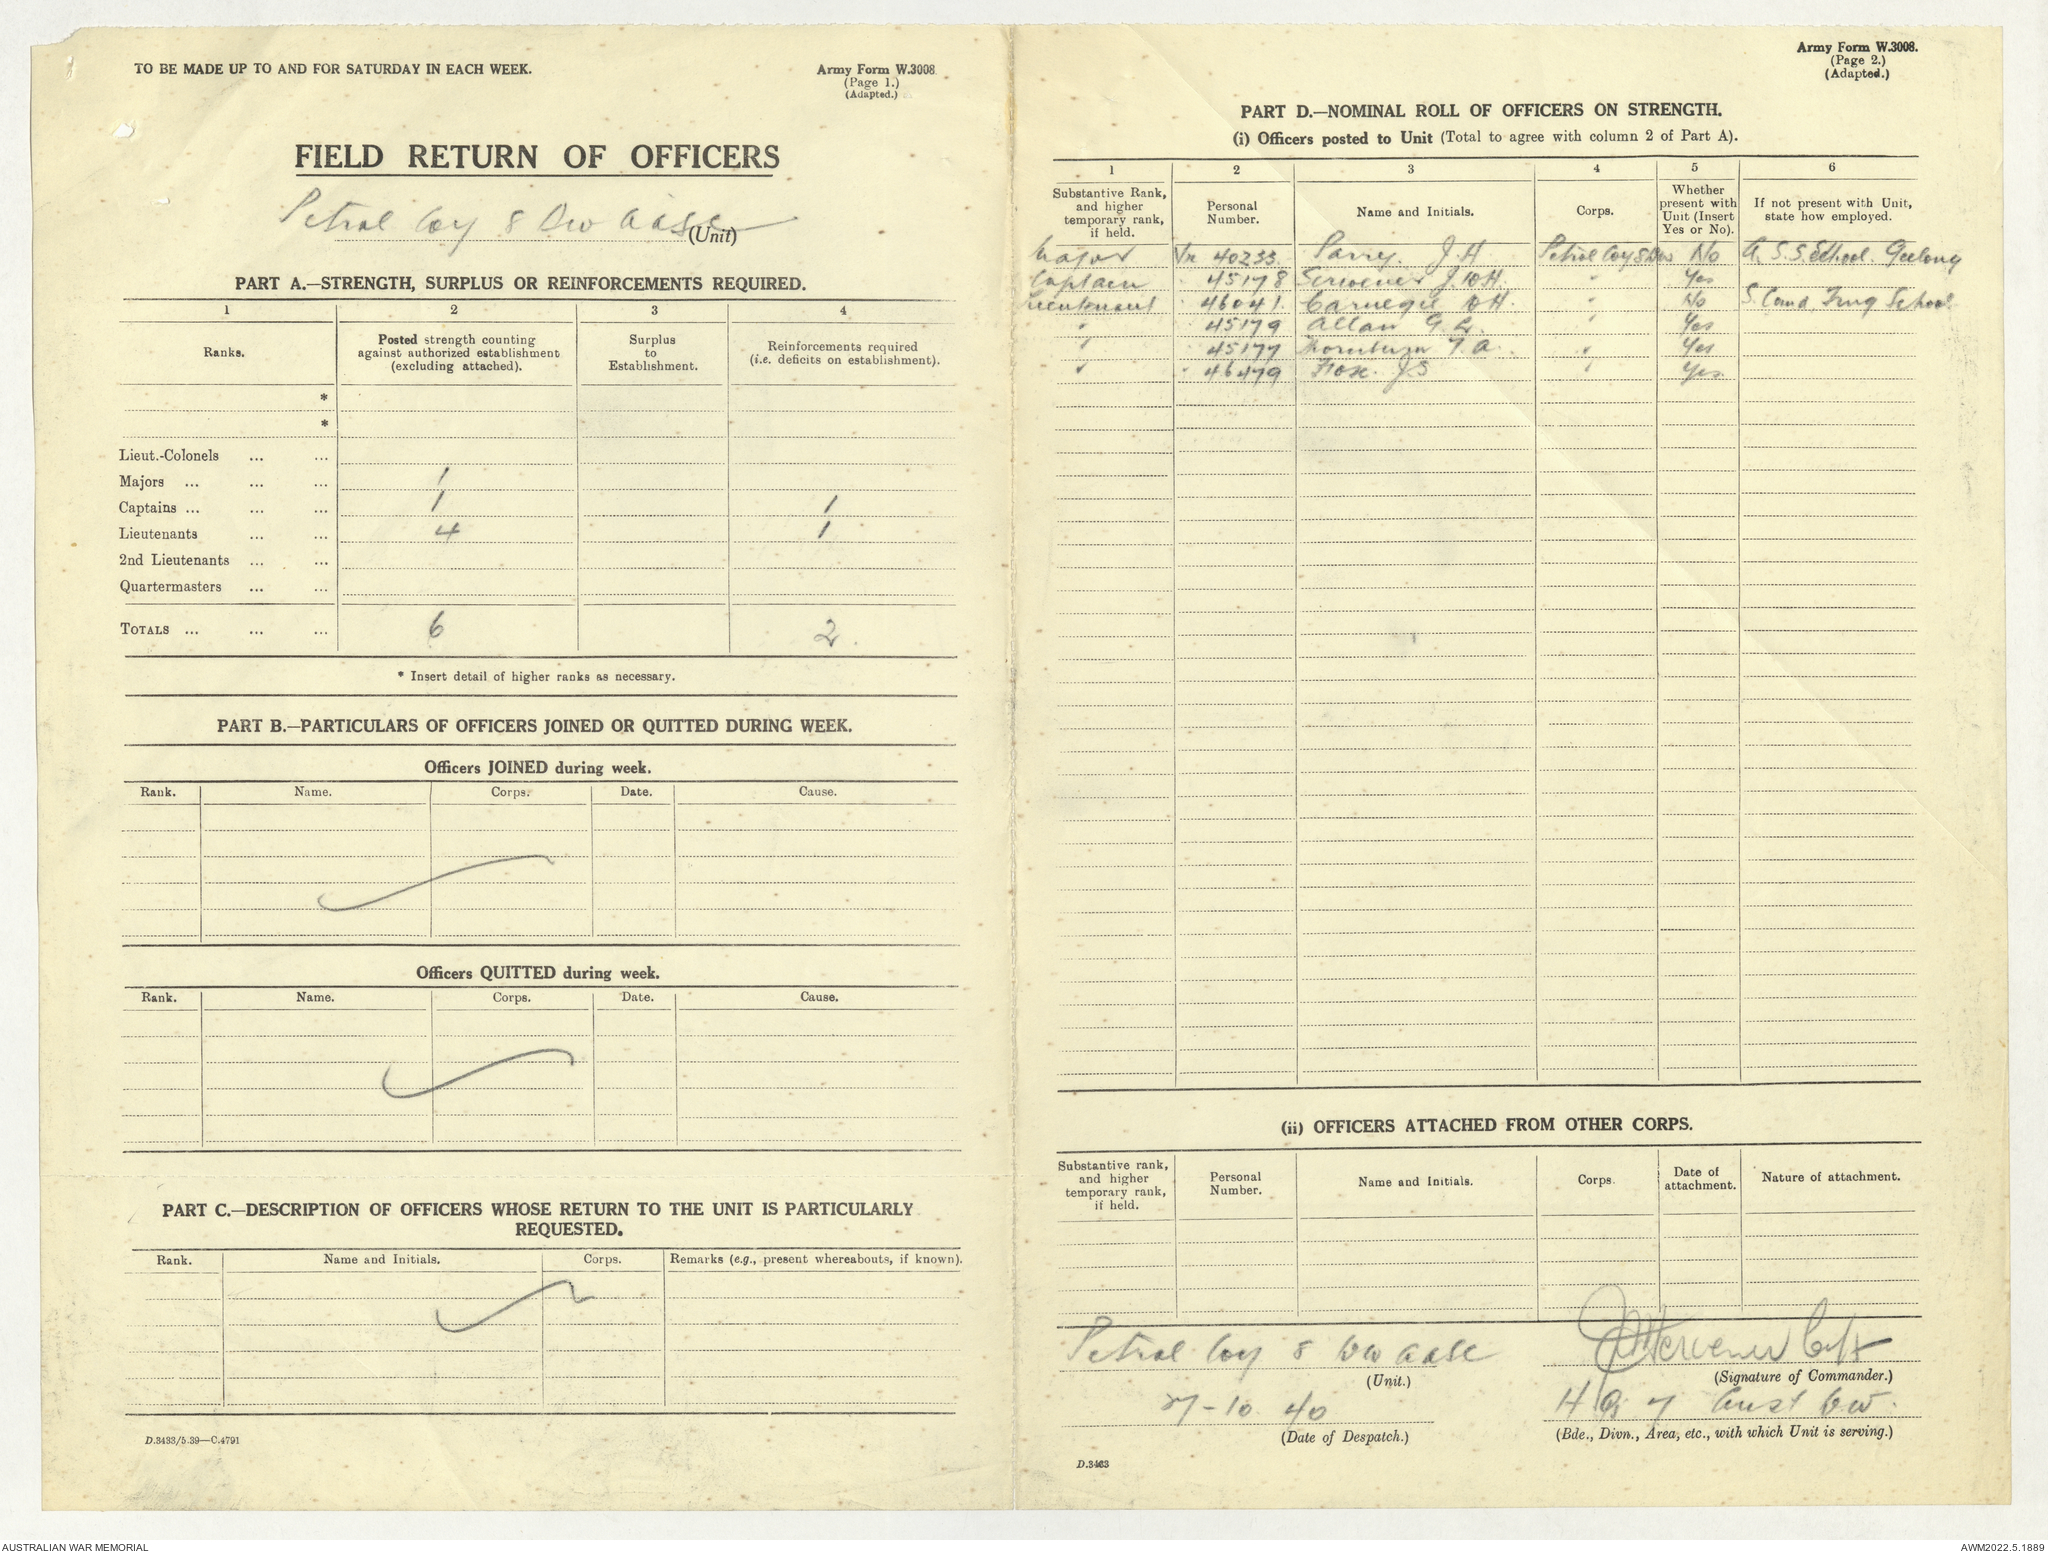 TO BE MADE UP TO AND FOR SATURDAY IN EACH WEEK.
Army Form W.3008
(Page 1.)
(Adapted.)
FIELD RETURN OF OFFICERS
Petrol Coy 8 Div AASC
(Unit)
PART A.—STRENGTH, SURPLUS OR REINFORCEMENTS REQUIRED.
1 2 3 4
Ranks. Posted strength counting against authorized establishment (excluding attached). Surplus to Establishment. Reinforcements required (i.e. deficits on establishment).
*
*
Lieut.-Colonels ... ...
Majors ... ... ... 1
Captains ... ... ... 1 1
Lieutenants ... ... 4 1
2nd Lieutenants ... ...
Quartermasters ... ...
TOTALS ... ... ... 6 2
* Insert detail of higher ranks as necessary.
PART B.—PARTICULARS OF OFFICERS JOINED OR QUITTED DURING WEEK.
Officers JOINED during week.
Rank. Name. Corps. Date. Cause.
Officers QUITTED during week.
Rank. Name. Corps. Date. Cause.
PART C.—DESCRIPTION OF OFFICERS WHOSE RETURN TO THE UNIT IS PARTICULARLY
REQUESTED.
Rank. Name and Initials. Corps. Remarks (e.g., present whereabouts, if known).
D.3433/5.39—C.4791
Army Form W.3008.
(Page 2.)
(Adapted.)
PART D.—NOMINAL ROLL OF OFFICERS ON STRENGTH.
(i) Officers posted to Unit (Total to agree with column 2 of Part A).
1 2 3 4 5 6
Substantive Rank, and higher temporary rank, if held. Personal Number. Name and Initials. Corps. Whether present with Unit (Insert Yes or No). If not present with Unit, state how employed.
Major Vx 40233 Parry. J H Petrol Coy 8 Div No A.S.S. School. Geelong
Captain " 45178 Scrivener J.W.H. " Yes
Lieutenant " 46041 Carnegie D H. " No S. Comd. Trng School
" " 45179 Allan G. L. " Yes
" " 45177 Thornburn T. A. " Yes
" " 46479 Flose. J S " Yes
(ii) OFFICERS ATTACHED FROM OTHER CORPS.
Substantive rank, and higher temporary rank, if held. Personal Number. Name and Initials. Corps. Date of attachment. Nature of attachment.
Petrol Coy 8 Div AASC
(Unit.)
Scrivener Capt
(Signature of Commander.)
27-10 40
(Date of Despatch.)
H Q. 7 Aust Div.
(Bde., Divn., Area, etc., with which Unit is serving.)
D.3433
AUSTRALIAN WAR MEMORIAL
AWM2022.5.1889